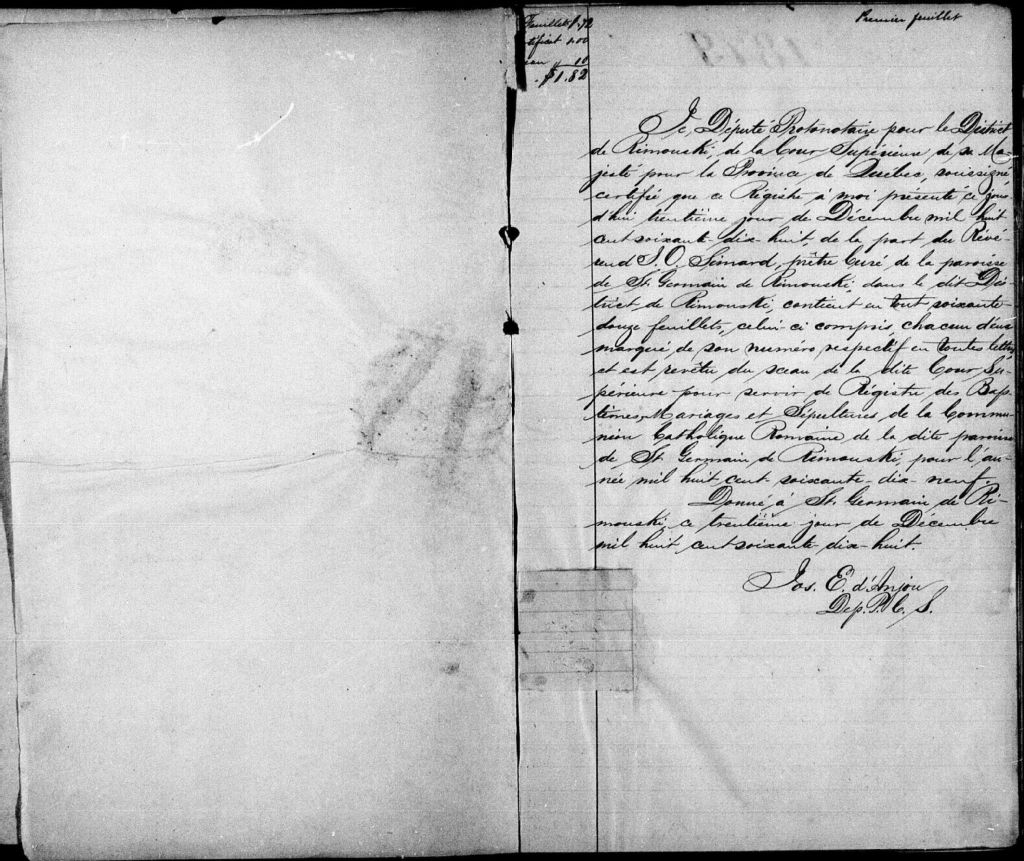 Premier feuillet
Feuillets $.72
tificat 1.00
eau " 10
$1.82
Je, Député Protonotaire pour le District
de Rimouski, de la Cour Supérieure de sa Ma-
jesté pour la Province de Québec, soussigné
certifie que ce Régistre à moi présenté ce jour
d'hui trentième jour de Décembre mil huit
cent soixante-dix-huit, de la part du Révé-
rend J. O. Simard, prêtre Curé de la paroisse
de St. Germain de Rimouski dans le dit Dis-
trict de Rimouski, contient en tout soixante-
douze feuillets, celui-ci compris, chacun d'eux
marqué de son numéro respectif en toutes lettres
et est revêtu du sceau de la dite Cour Su-
périeure pour servir de Régistre des Bap-
têmes, Mariages et Sépultures de la Commu-
nion Catholique Romaine de la dite paroisse
de St. Germain de Rimouski, pour l'an-
née mil huit cent soixante-dix-neuf.
Donné à St. Germain de Ri-
mouski, ce trentième jour de Décembre
mil huit cent soixante-dix-huit.
Jos. E. d'Anjou
Dep. P. C. S.